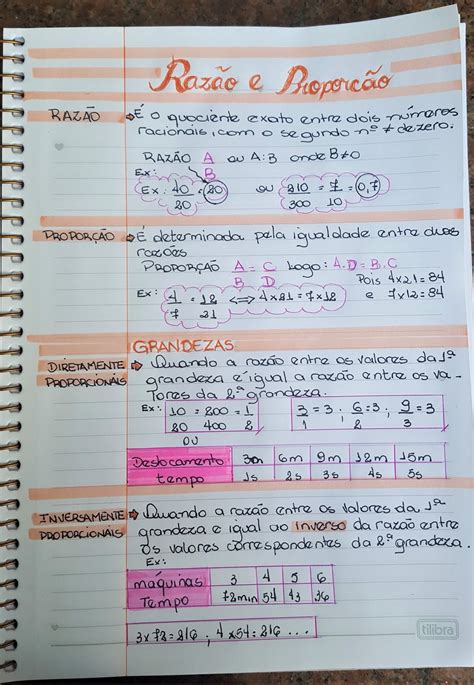 Razão e Proporção
RAZÃO ⇨ É o quociente exato entre dois números
racionais, com o segundo nº ≠ de zero.
RAZÃO A/B ou A:B onde B≠0
Ex:
Ex: 40/20 = 20 ou 210/300 = 7/10 = 0,7
PROPORÇÃO ⇨ É determinada pela igualdade entre duas
razões
PROPORÇÃO A/B = C/D Logo: A.D = B.C
Ex: 4/7 = 12/21 ⟺ 4x21 = 7x12
Pois 4x21=84
e 7x12=84
GRANDEZAS
DIRETAMENTE PROPORCIONAIS ⇨ Quando a razão entre os valores da 1ª
grandeza é igual a razão entre os va-
lores da 2ª grandeza.
Ex: 10/20 = 200/400 = 1/2
3/1 = 3 ; 6/2 = 3 ; 9/3 = 3
OU
Deslocamento 3m 6m 9m 12m 15m
tempo 1s 2s 3s 4s 5s
INVERSAMENTE PROPORCIONAIS ⇨ Quando a razão entre os valores da 1ª
grandeza e igual ao inverso da razão entre
os valores correspondentes da 2ª grandeza.
Ex:
máquinas 3 4 5 6
Tempo 72min 54 43 36
3x72=216 , 4x54=216 ...
tilibra